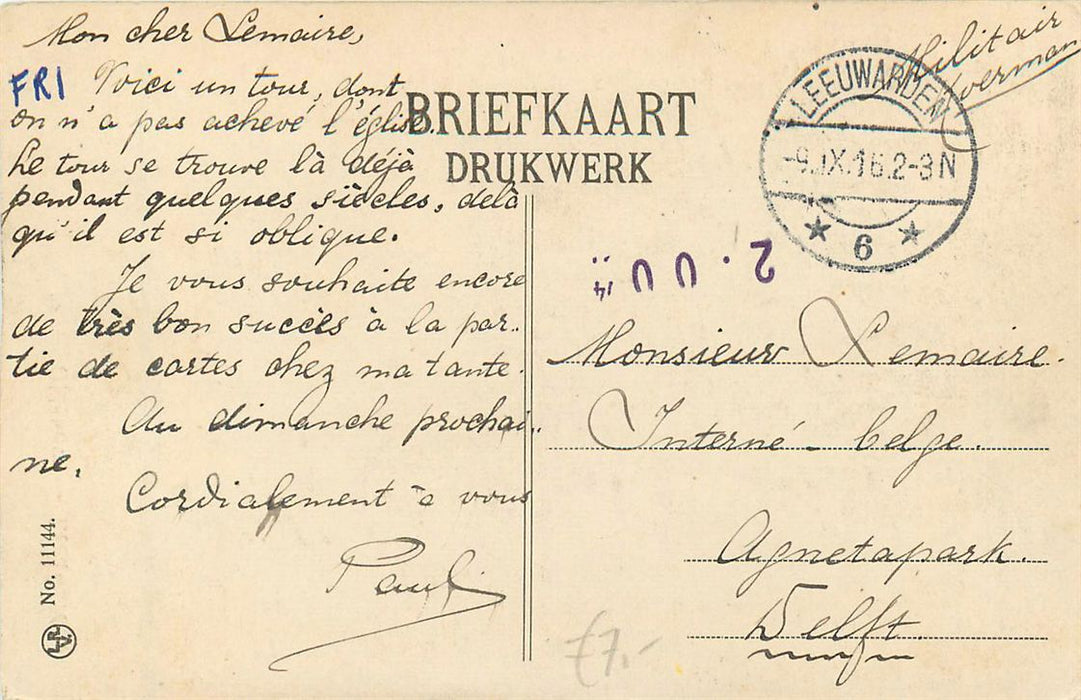 Mon cher Lemaire,
FRI Voici un tour, dont
on n'a pas achevé l'église.
Le tour se trouve là déjà
pendant quelques siècles, delà
qu'il est si oblique.
Je vous souhaite encore
de très bon succès à la par..
tie de cartes chez ma tante.
Au dimanche prochai..
ne.
Cordialement à vous
Paul.
No. 11144.
L.R.
V.
BRIEFKAART
DRUKWERK
LEEUWARDEN
-9.IX.16.2-3N
* 6 *
Militair
2.00
Monsieur Lemaire.
Interné - belge.
Agnetapark.
Delft.
£7.-